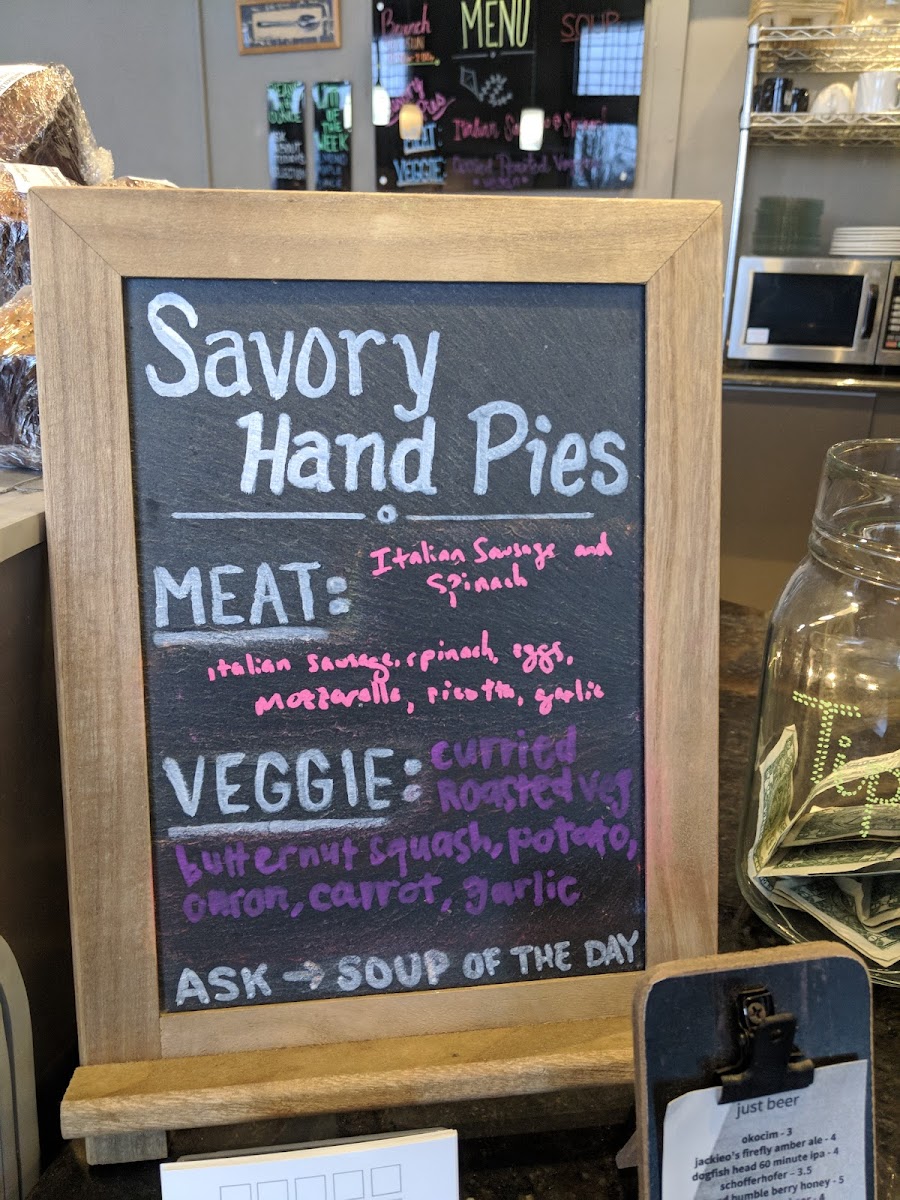 Brunch
MENU
SOUP
MEAT:
VEGGIE:
OF THE
WEEK
Savory
Hand Pies
MEAT: Italian Sausage and
Spinach
italian sausage, spinach, eggs,
mozzarella, ricotta, garlic
VEGGIE: curried
Roasted veg
butternut squash, potato,
onion, carrot, garlic
ASK → SOUP OF THE DAY
Tip
just beer
okocim - 3
jackieo's firefly amber ale - 4
dogfish head 60 minute ipa - 4
schofferhofer - 3.5
humble berry honey - 5